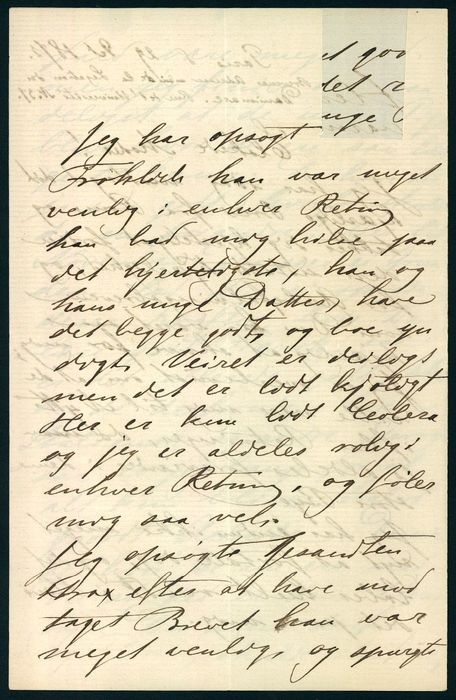 Jeg har opsøgt
Frøhlich han var meget
venlig i enhver Retning
han bad mig hilse paa
det hjerteligste, han og
hans unge Datter, have
det begge godt, og boe yn
digt. Veiret er deiligt
men det er lidt kjøligt
Her er kun lidt Colera
og jeg er aldeles rolig i
enhver Retning, og føler
mig saa vel.
Jeg opsøgte Gesandten
strax efter at have mod
taget Brevet han var
meget venlig, og spurgte